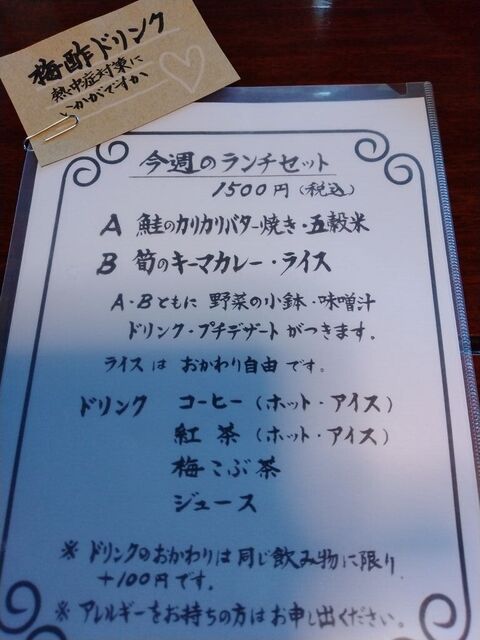 梅酢ドリンク
熱中症対策に
いかがですか
今週のランチセット
1500円(税込)
A 鮭のカリカリバター焼き・五穀米
B 筍のキーマカレー・ライス
A・Bともに 野菜の小鉢・味噌汁
ドリンク・プチデザートがつきます。
ライスは おかわり自由です。
ドリンク コーヒー(ホット・アイス)
紅茶(ホット・アイス)
梅こぶ茶
ジュース
※ ドリンクのおかわりは同じ飲み物に限り
+100円です。
※ アレルギーをお持ちの方はお申し出ください。